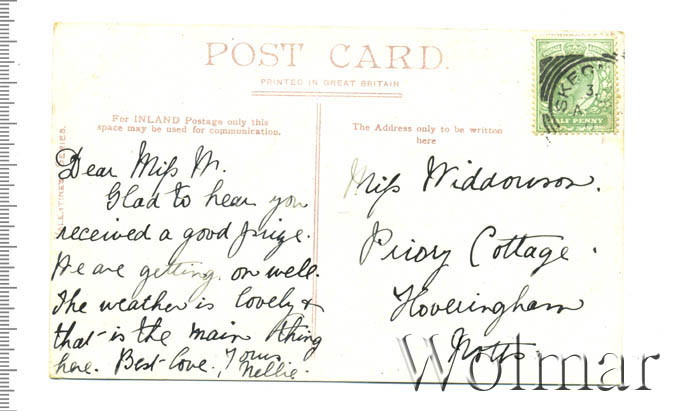 POST CARD.
PRINTED IN GREAT BRITAIN
For INLAND Postage only this
space may be used for communication.
The Address only to be written
here
Dear Miss W.
Glad to hear you
received a good prize.
We are getting on well.
The weather is lovely &
that is the main thing
here. Best love. Yours
Nellie.
Miss Widdowson.
Priory Cottage.
Hoveringham
Notts
HALF PENNY
Wolmar